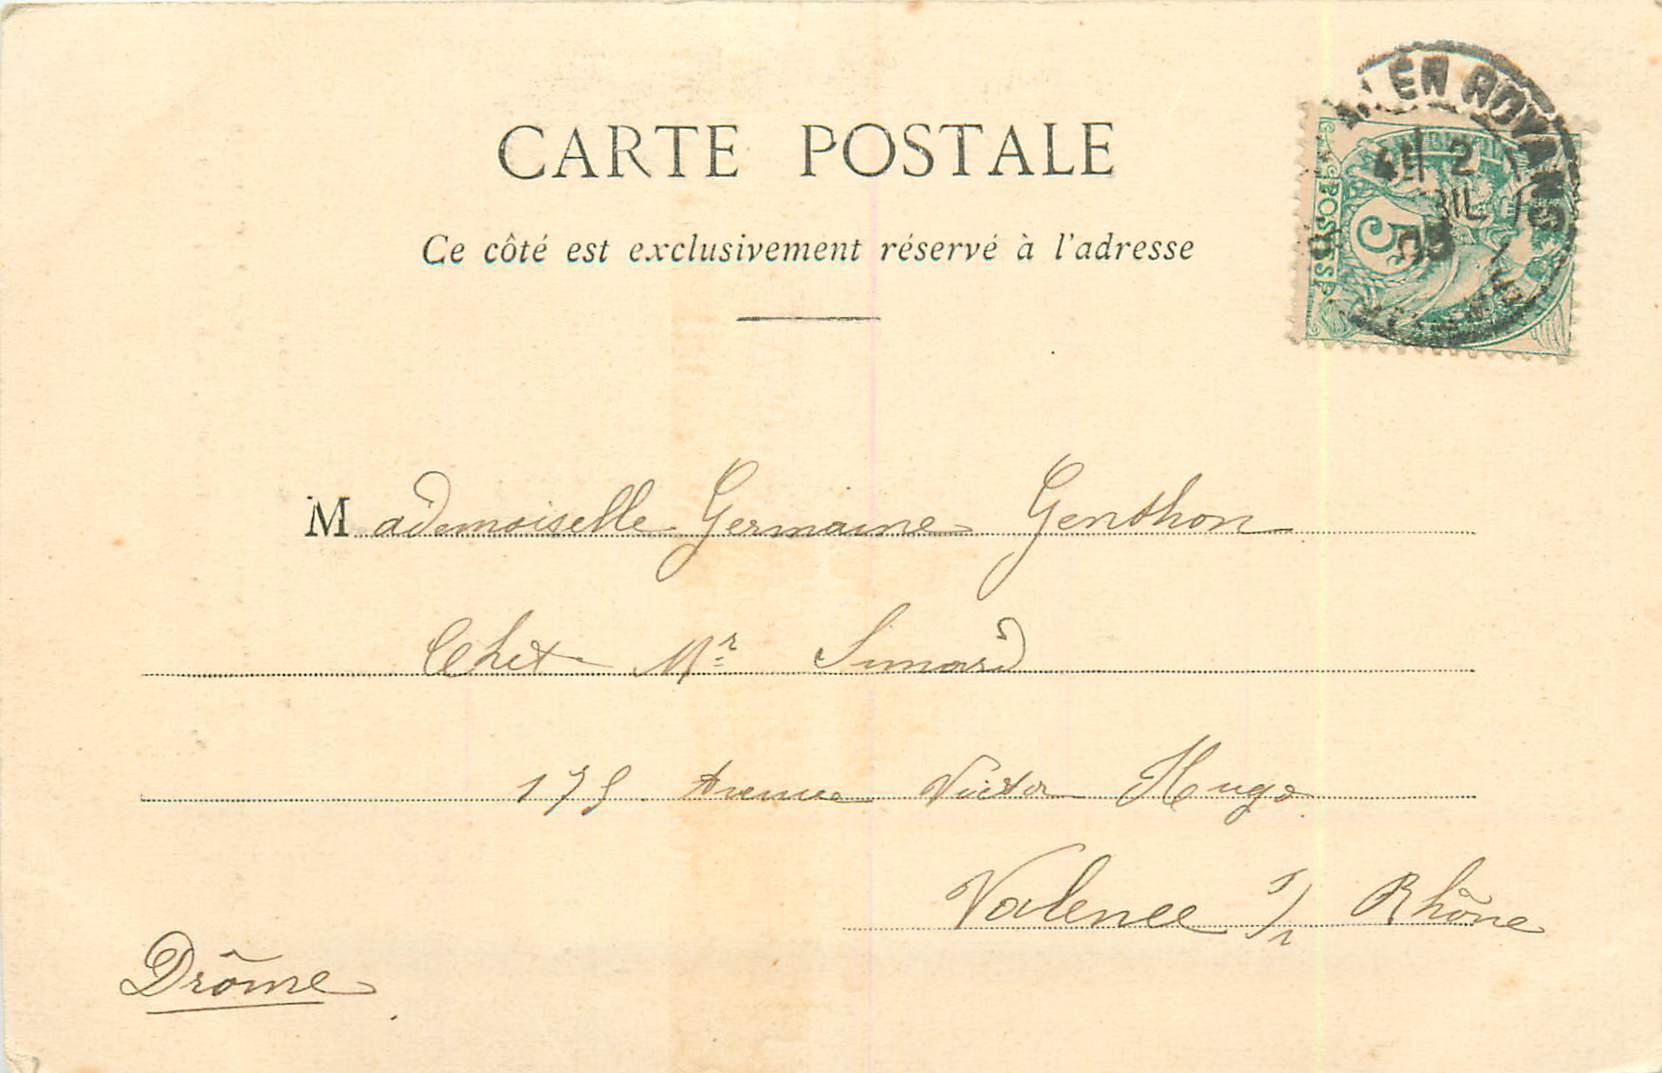 CARTE POSTALE
Ce côté est exclusivement réservé à l'adresse
EN ROYANS
2
POSTES
5
Mademoiselle Germaine Genthon
Chez Mr Simard
175 Avenue Victor Hugo
Valence s/ Rhône
Drôme